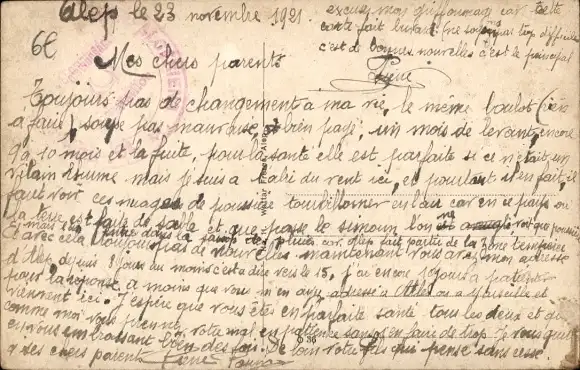 Alep le 23 novembre 1921.
excusez mon griffonnage car cette
carte fait buvard ne soyez pas trop difficiles
c'est de bonnes nouvelles c'est le principal
René
6€
Mes chers parents
Toujours pas de changement à ma vie, le même boulot (rien
à faire) soupe pas mauvaise, bien payé, un mois de levant, encore
10 mois et la fuite, pour la santé elle est parfaite si ce n'était un
vilain rhume mais je suis à l'abri du vent ici, et pourtant il en fait, il
faut voir ces nuages de poussière tourbillonner en l'air car en ce pays ou
la terre est faite de sable et que passe le simoun l'on ne voit que poussière
et mais car Alep fait partie de la zone tempérée
et avec cela toujours pas de nouvelles maintenant vous avez mon adresse
d'Alep depuis 8 jours du moins c'est à dire vers le 15, j'ai encore jours à patienter
pour la réponse à moins que vous m'en ayez adressé à ou à Marseille et
viennent ici. J'espère que vous êtes en parfaite santé tous les deux et que
comme moi vous prenez votre mal en patience sans s'en faire de trop. Je vous quitte
en vous embrassant bien des fois. De loin votre fils qui pense sans cesse
à ses chers parents René
Wattar Frères, Alep
36